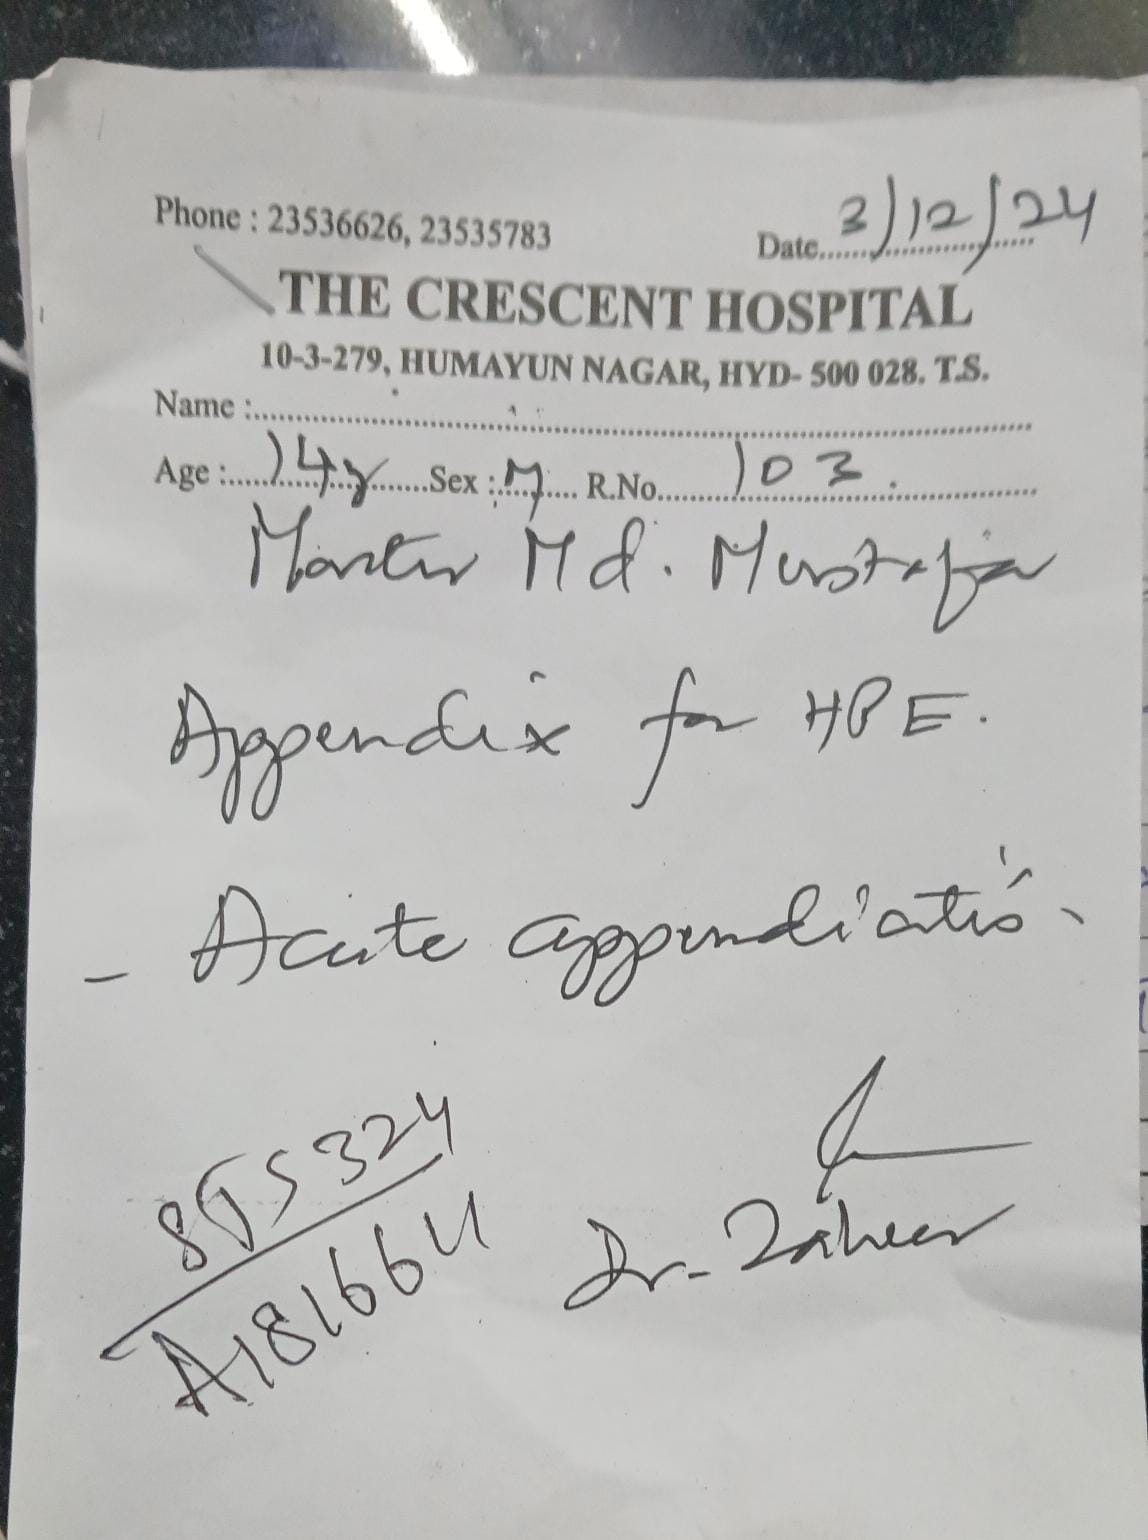 Phone : 23536626, 23535783
Date 3/12/24
THE CRESCENT HOSPITAL
10-3-279, HUMAYUN NAGAR, HYD- 500 028. T.S.
Name :
Age : 14y Sex : M R.No. 103
Master Md. Mustafa
Appendix for HPE.
- Acute appendicitis.
Dr. Zaheer